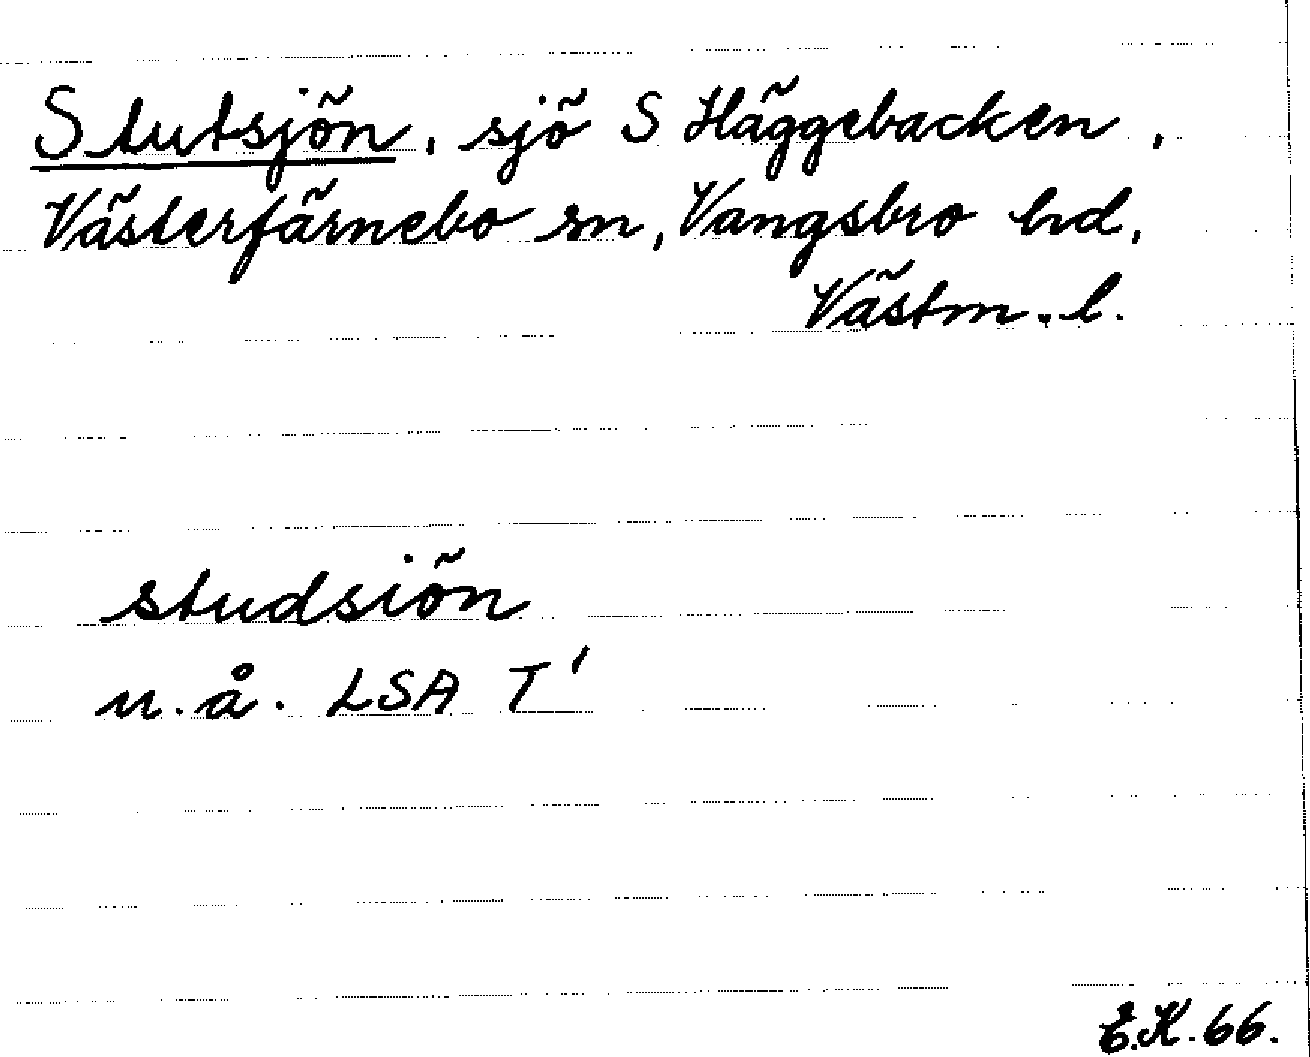 Stutsjön, sjö S Häggebacken,
Västerfärnebo sn, Vangsbro hd,
Västm. l.
studsiön
u.å. LSA T'
E.K. 66.